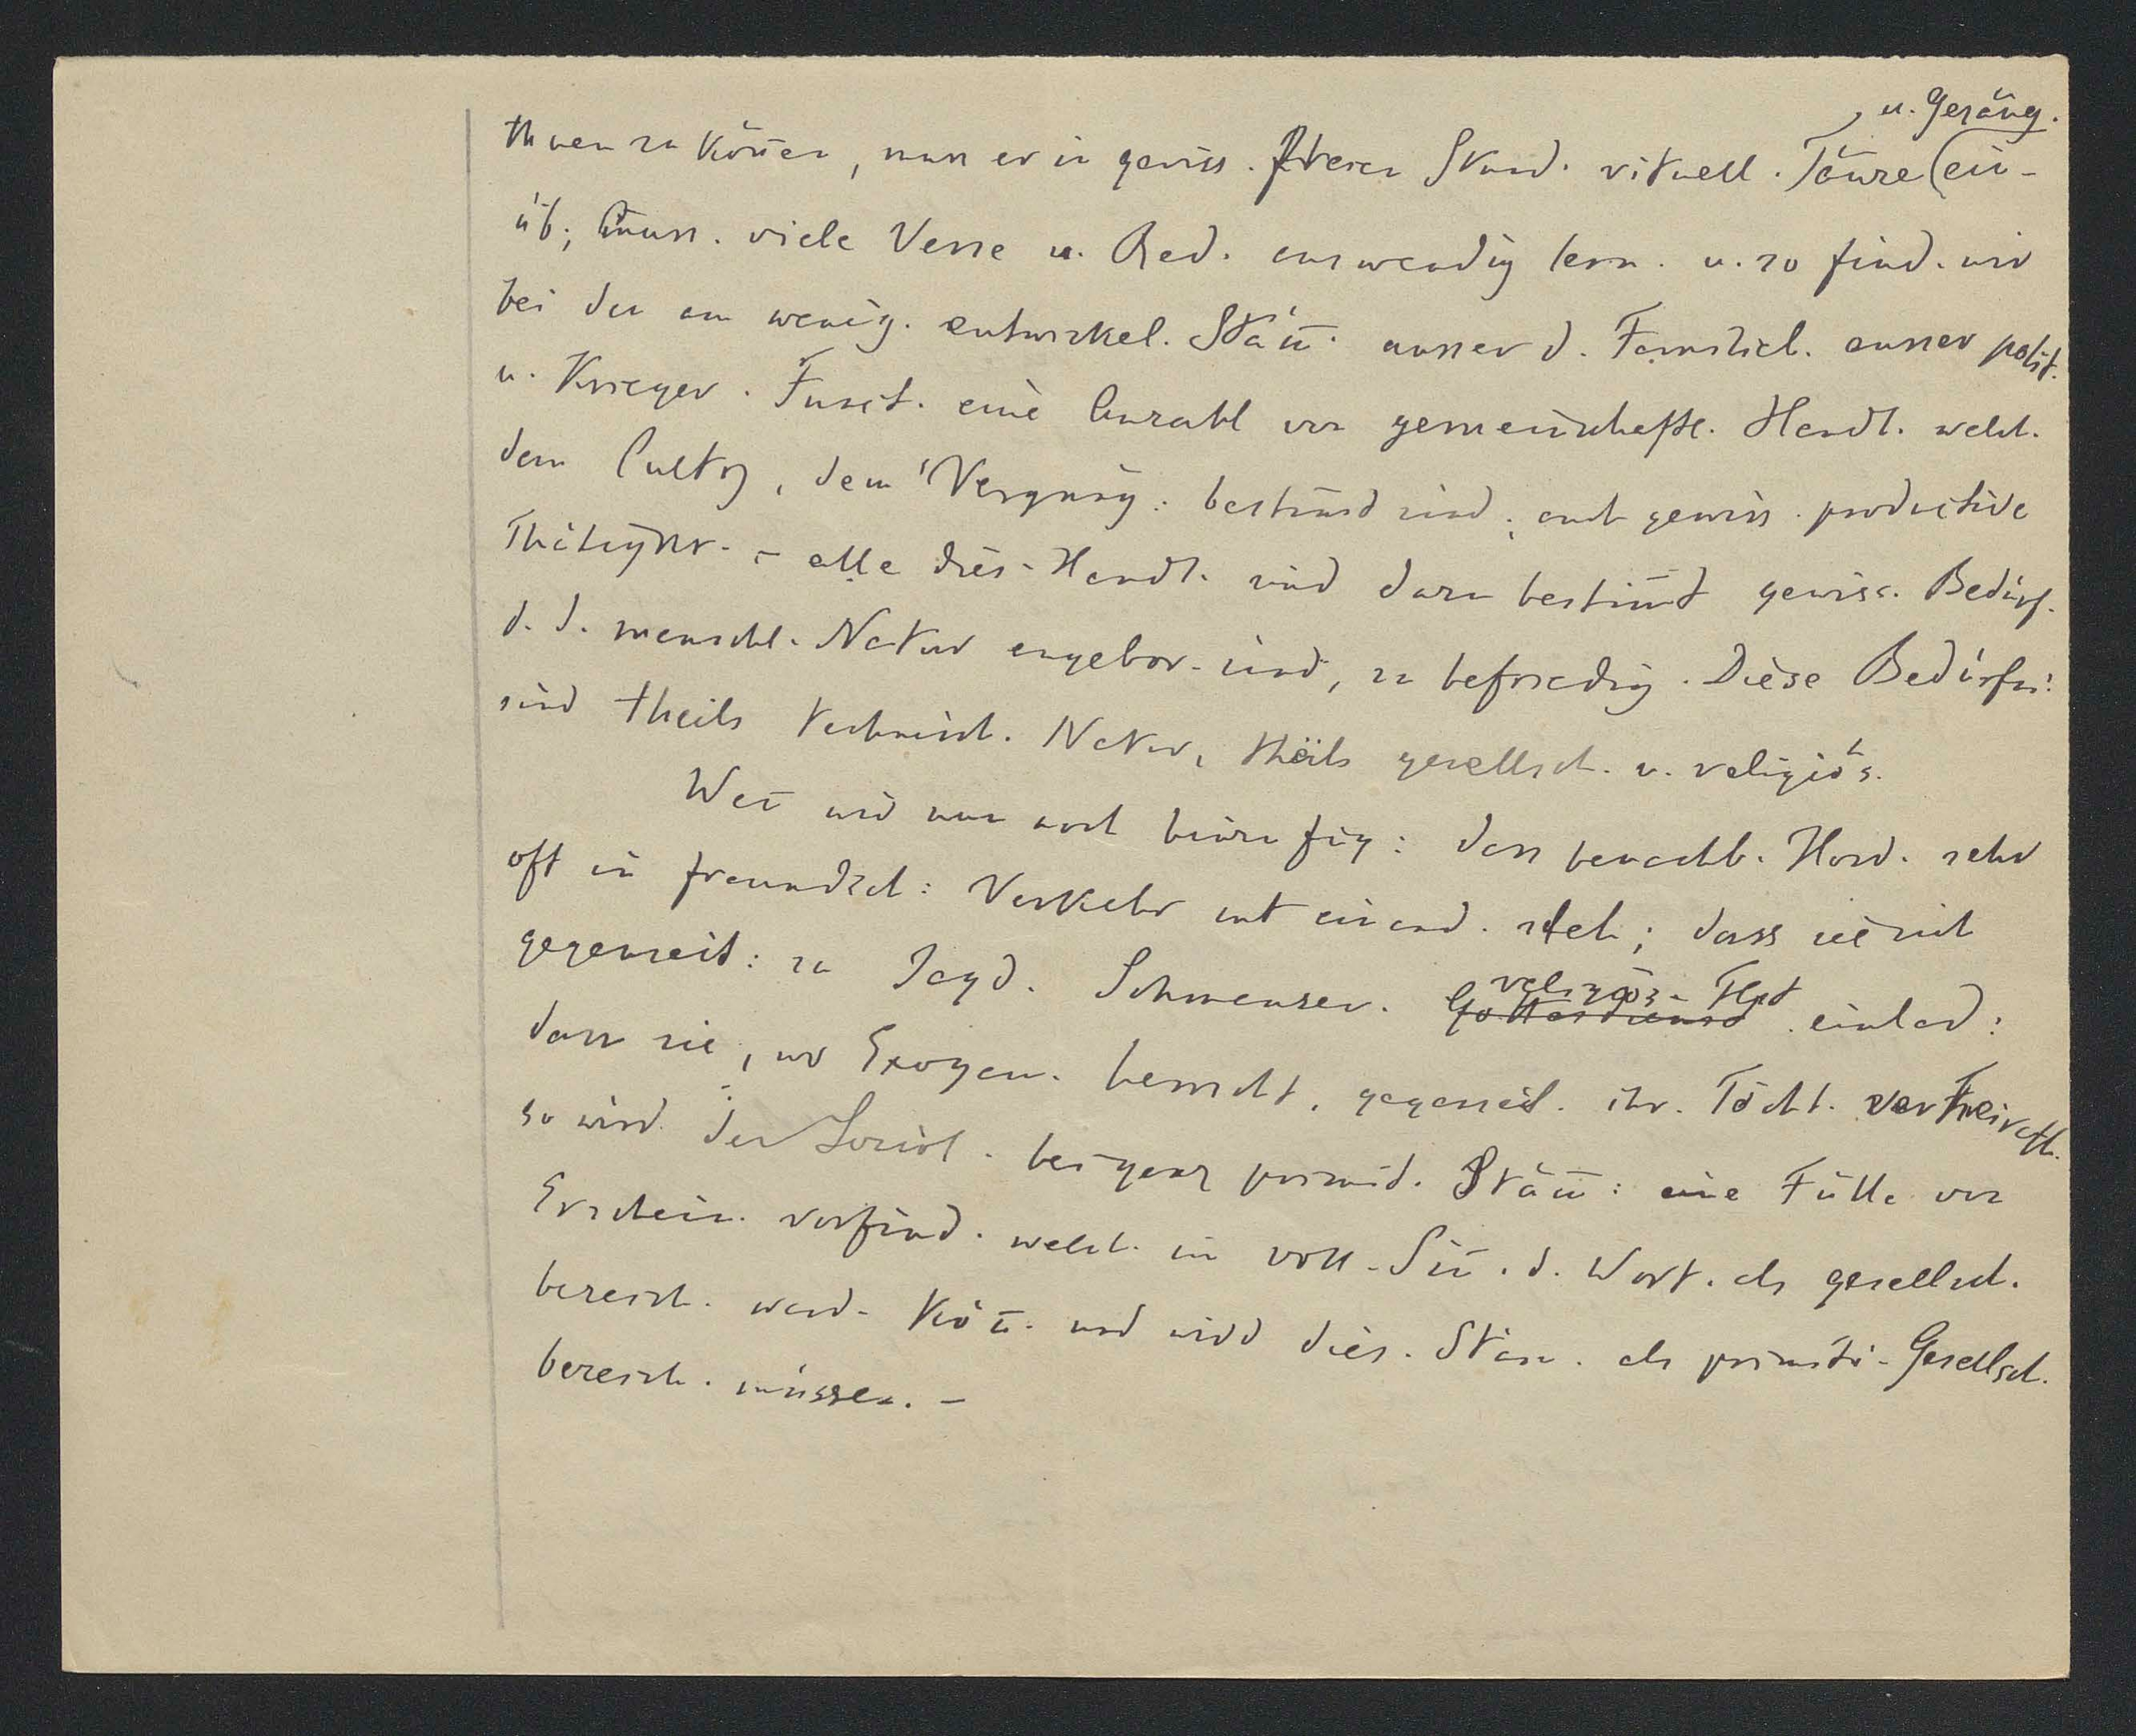 u. Gesäng.
thuen zu können, muss er in gewiss. freien Stund. rituell. Tänze (ein-
üb.; muss. viele Verse u. Red. auswendig lern. u. so find. wir
bei den am wenig. entwickel. Stäm̅. ausser d. Familiel. ausser polit.
u. Krieger. Funct. eine Anzahl von gemeinschaftl. Handl. welch.
dem Cultus, dem Vergnüg. bestimmt sind; auch gewiss. productive
Thätigkt. – alle dies. Handl. sind dazu bestim̅t gewiss. Bedürf.
d. d. menschl. Natur angebor. sind, zu befriedig. Diese Bedürfn.
sind theils technisch. Natur, theils gesellsch. u. religiös.
Wen̅ wir nun noch hinzufüg: dass benachb. Hord. sehr
oft in freundsch: Verkehr mit einand. steh; dass sie sich
gegenseit: zu Jagd. Schmauser. religiös. Fest
Gottesdienst einlad:
dass sie, wo Exogam. herrscht, gegenseit. ihr. Töcht. verheirath.
so wird der Sociol. bei ganz primit. Stäm̅: eine Fülle von
Erschein. vorfind. welch. im voll. Sin̅. d. Wort. als gesellsch.
bezeich. werd. kön̅. und wird dies. Stäm. als primiti. Gesellsch.
bezeich. müssen. –